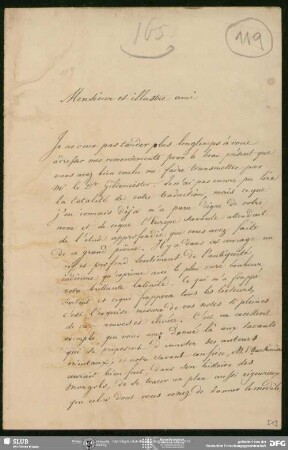 165.
119
Monsieur et illustre ami.
Je ne veux pas tarder plus longtemps à vous
adresser mes remerciements pour le beau présent que
vous avez bien voulu me faire transmettre, par
Mr le Dr Gildemeister. Je n'ai pas encore pu lire
la totalité de votre traduction, mais ce que
j'en connais déjà m'a paru digne de votre
nom et de ce que l'Europe savante attendait
de l'étude approfondie que vous avez faite
de ce grand poëme. Il y a dans cet ouvrage un
profond sentiment de l'antiquité
indienne qui s'exprime avec le plus rare bonheur
votre brillante latinité. Ce qui m'a frappé
surtout et ce qui frappera tous les lecteurs,
c'est l'exquise mesure de vos notes si pleines
de nouvelles et choisies. C'est un excellent
exemple que vous avez donné là aux savants
qui se proposent de traiter des auteurs
orientaux; et votre savant confrère, Mr
aurait bien fait, dans son histoire des
Mongols, de se tracer un plan aussi rigoureux
que celui dont vous venez de donner le modèle
SLUB
DFG